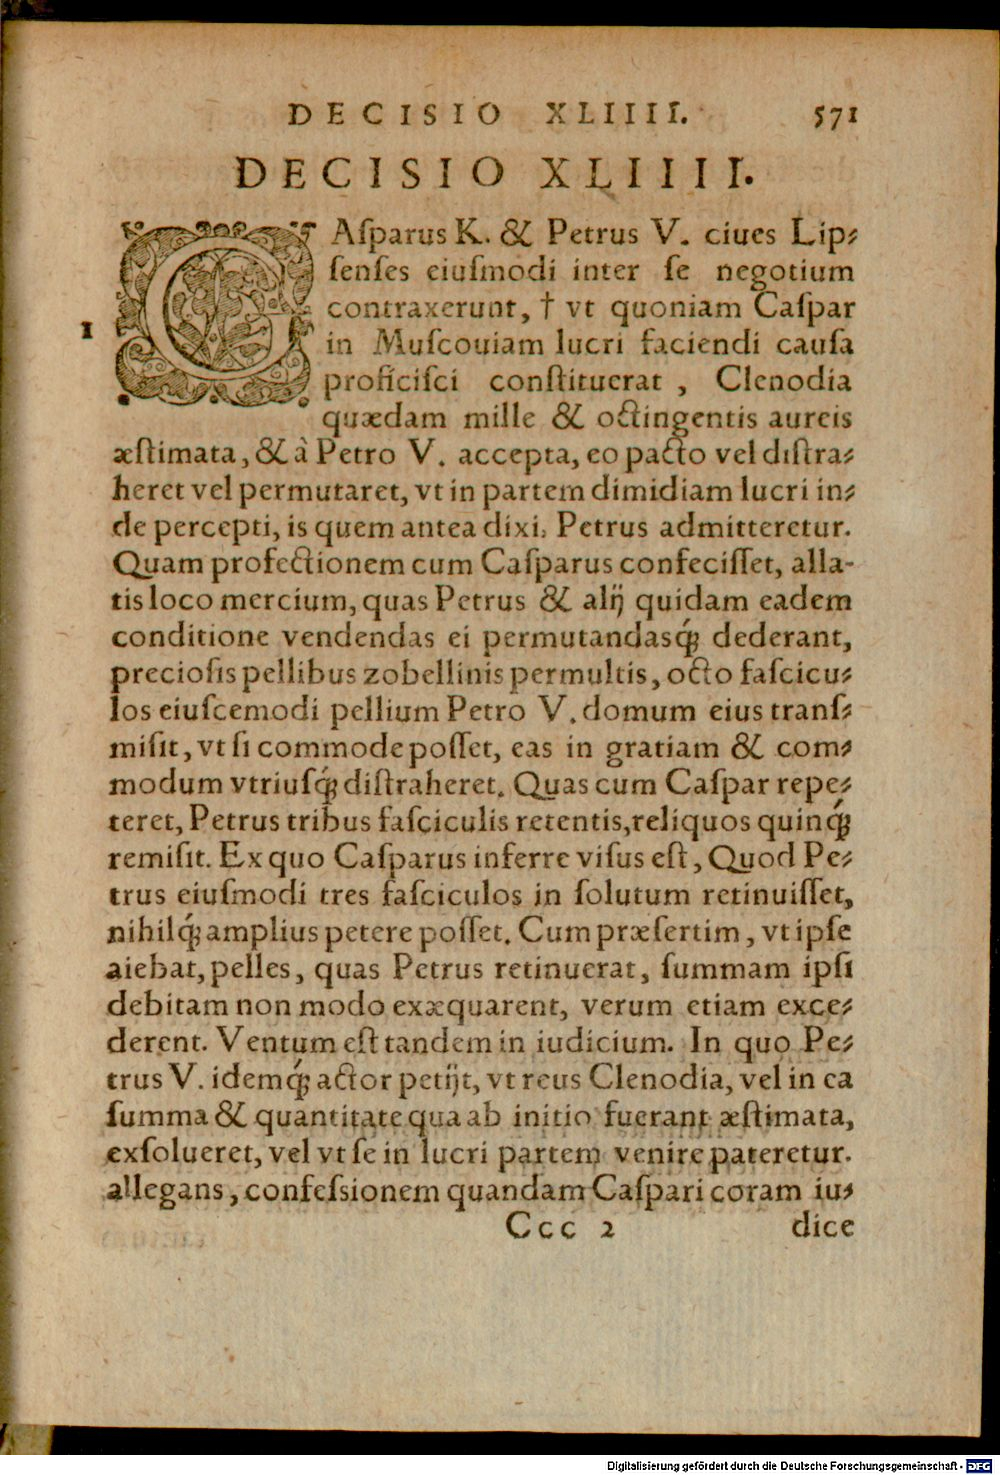 DECISIO XLIIII. 571
DECISIO XLIIII.
CAſparus K. & Petrus V. ciues Lip⸗
ſenſes eiuſmodi inter ſe negotium
contraxerunt, † vt quoniam Caſpar
1 in Muſcouiam lucri faciendi cauſa
proficiſci conſtituerat , Clenodia
quædam mille & octingentis aureis
æſtimata, & à Petro V. accepta, eo pacto vel diſtra⸗
heret vel permutaret, vt in partem dimidiam lucri in⸗
de percepti, is quem antea dixi, Petrus admitteretur.
Quam profectionem cum Caſparus confeciſſet, alla-
tis loco mercium, quas Petrus & alij quidam eadem
conditione vendendas ei permutandasq́; dederant,
precioſis pellibus zobellinis permultis, octo faſcicu⸗
los eiuſcemodi pellium Petro V. domum eius tranſ⸗
miſit, vt ſi commode poſſet, eas in gratiam & com⸗
modum vtriuſq́; diſtraheret. Quas cum Caſpar repe⸗
teret, Petrus tribus faſciculis retentis, reliquos quinq́;
remiſit. Ex quo Caſparus inferre viſus eſt, Quod Pe⸗
trus eiuſmodi tres faſciculos in ſolutum retinuiſſet,
nihilq́; amplius petere poſſet. Cum præſertim, vt ipſe
aiebat, pelles, quas Petrus retinuerat, ſummam ipſi
debitam non modo exæquarent, verum etiam exce⸗
derent. Ventum eſt tandem in iudicium. In quo Pe⸗
trus V. idemq́; actor petijt, vt reus Clenodia, vel in ea
ſumma & quantitate qua ab initio fuerant æſtimata,
exſolueret, vel vt ſe in lucri partem venire pateretur.
allegans, confeſsionem quandam Caſpari coram iu⸗
Ccc 2 dice
Digitalisierung gefördert durch die Deutsche Forschungsgemeinschaft - DFG